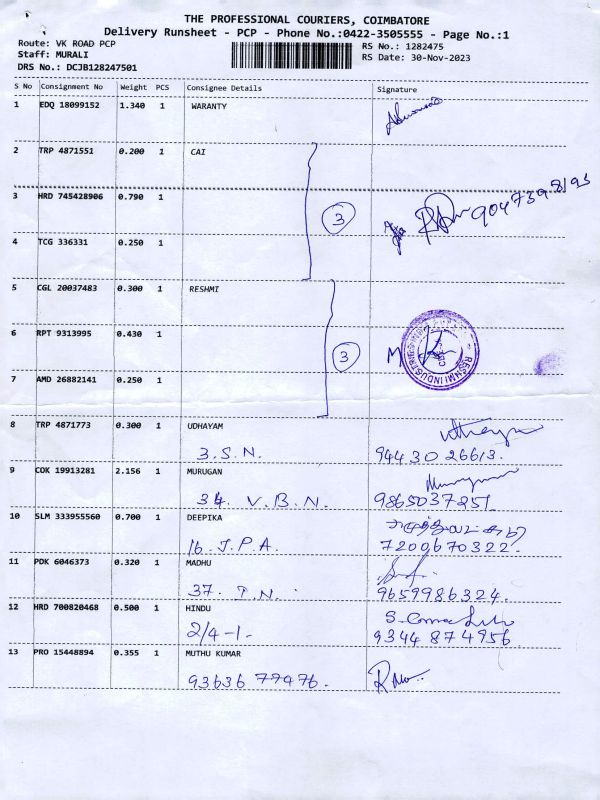 THE PROFESSIONAL COURIERS, COIMBATORE
Delivery Runsheet - PCP - Phone No.:0422-3505555 - Page No.:1
Route: VK ROAD PCP
Staff: MURALI
DRS No.: DCJB128247501
RS No.: 1282475
RS Date: 30-Nov-2023
S No Consignment No Weight PCS Consignee Details Signature
1 EDQ 18099152 1.340 1 WARANTY
2 TRP 4871551 0.200 1 CAI
3 HRD 745428906 0.790 1
3
4 TCG 336331 0.250 1
5 CGL 20037483 0.300 1 RESHMI
6 RPT 9313995 0.430 1
3
RESHMI INDUSTRIES
7 AMD 26882141 0.250 1
8 TRP 4871773 0.300 1 UDHAYAM
3. S. N. 94430 26613.
9 COK 19913281 2.156 1 MURUGAN
34. V. B. N. 9865037251
10 SLM 333955560 0.700 1 DEEPIKA
16. J. P. A. 7200670322.
11 PDK 6046373 0.320 1 MADHU
37. T. N. 9659986324.
12 HRD 700820468 0.500 1 HINDU
2/4-1. 9344 874956
13 PRO 15448894 0.355 1 MUTHU KUMAR
93636 77976.